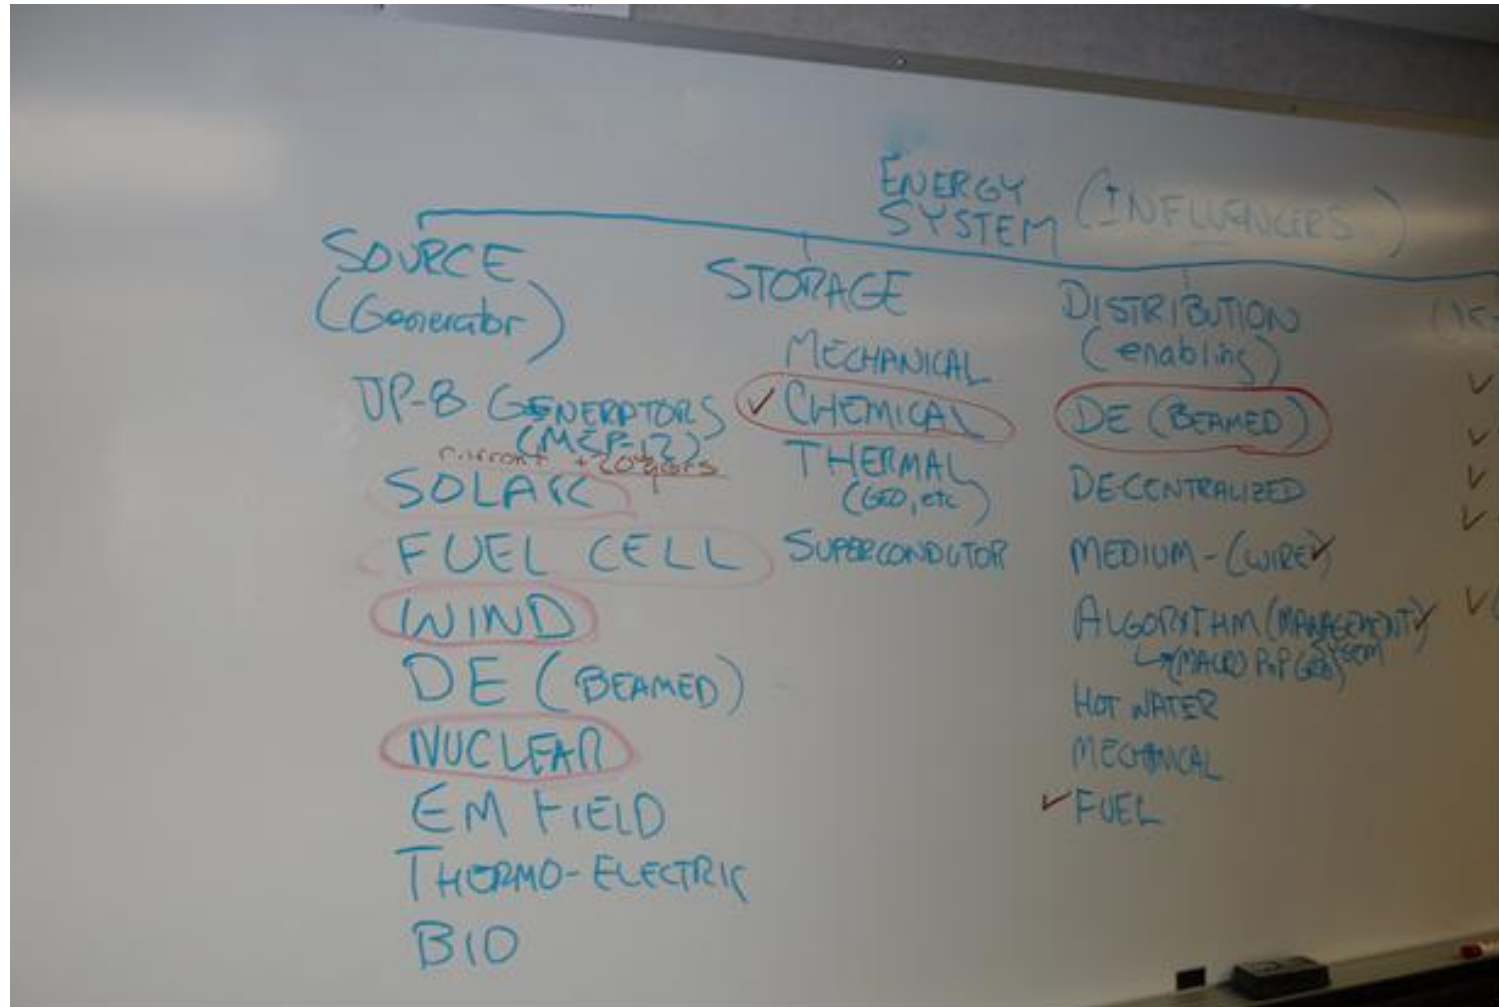 ENERGY
SYSTEM
(INFLUENCERS)
SOURCE
(Generator)
JP-8 GENERATORS
(MEP-12)
current +20 years
SOLAR
FUEL CELL
WIND
DE (BEAMED)
NUCLEAR
EM FIELD
THERMO-ELECTRIC
BIO
STORAGE
MECHANICAL
✓ CHEMICAL
THERMAL
(GEO, etc)
SUPERCONDUTOR
DISTRIBUTION
(enabling)
DE (BEAMED)
DECENTRALIZED
MEDIUM-(WIRE) ✓
ALGORITHM (MANAGEMENT) ✓
SYSTEM
↳ (MACRO POP GRID)
HOT WATER
MECHANICAL
✓ FUEL
✓
✓
✓
✓
✓